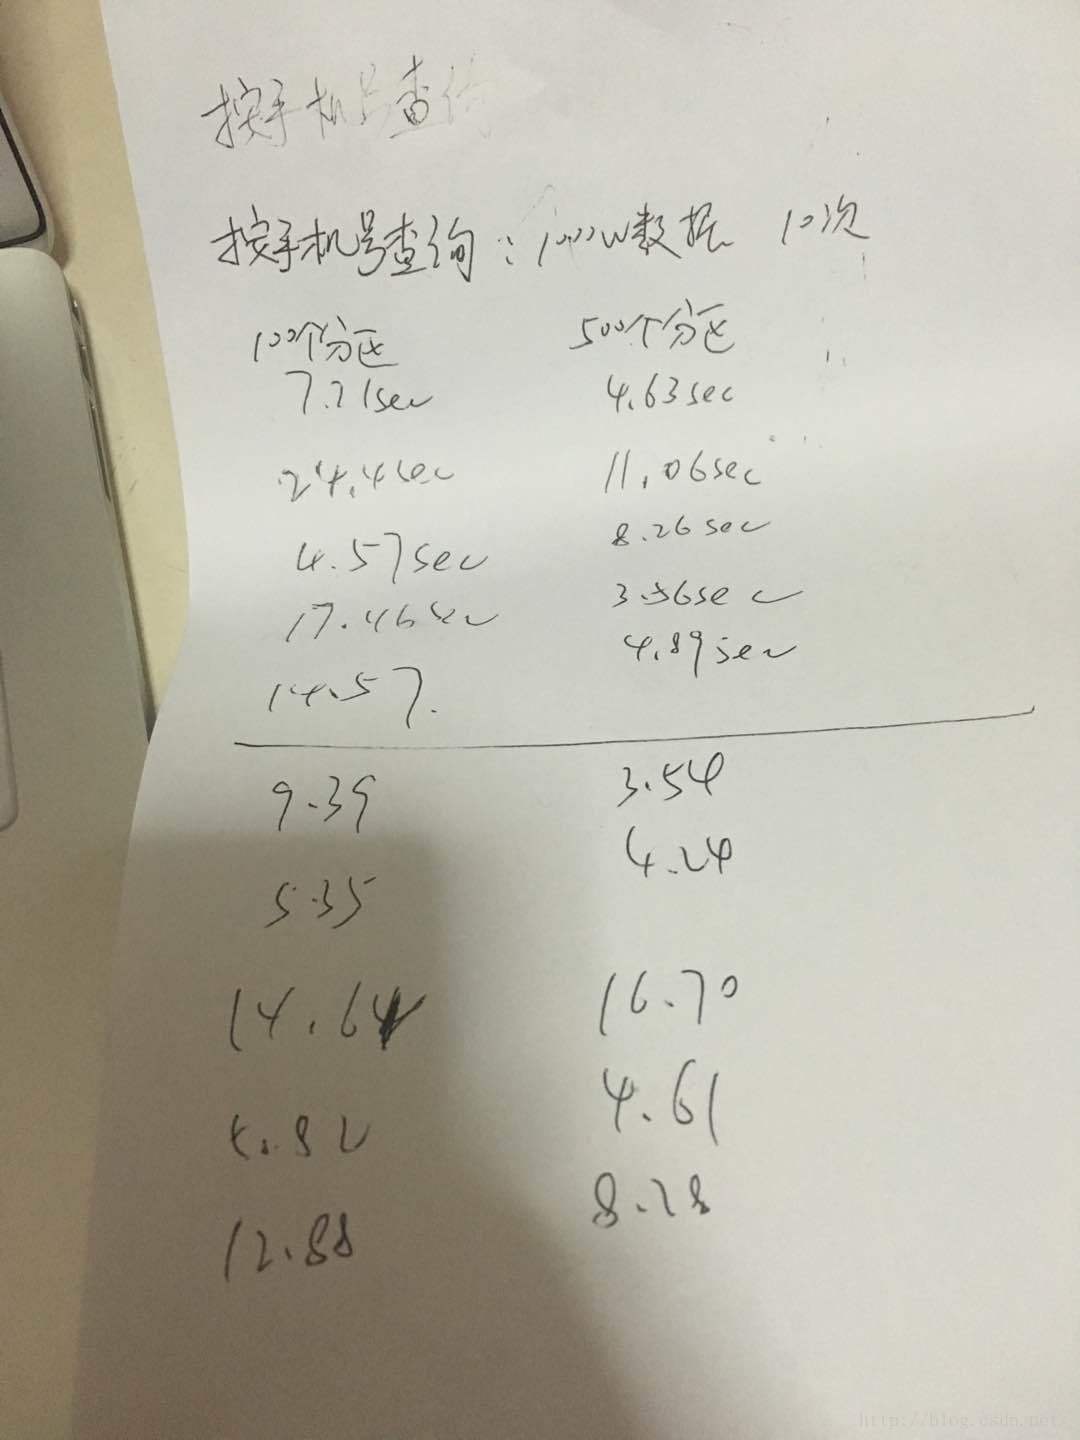 按手机号查询
按手机号查询：1000W数据 10次
100个分区 500个分区
7.21sec 4.63sec
24.4sec 11.06sec
4.57sec 8.26sec
17.46sec 3.56sec
14.57. 4.89sec
9.39 3.54
5.35 4.24
14.64 16.70
4.61
12.88 8.28
http://blog.csdn.net